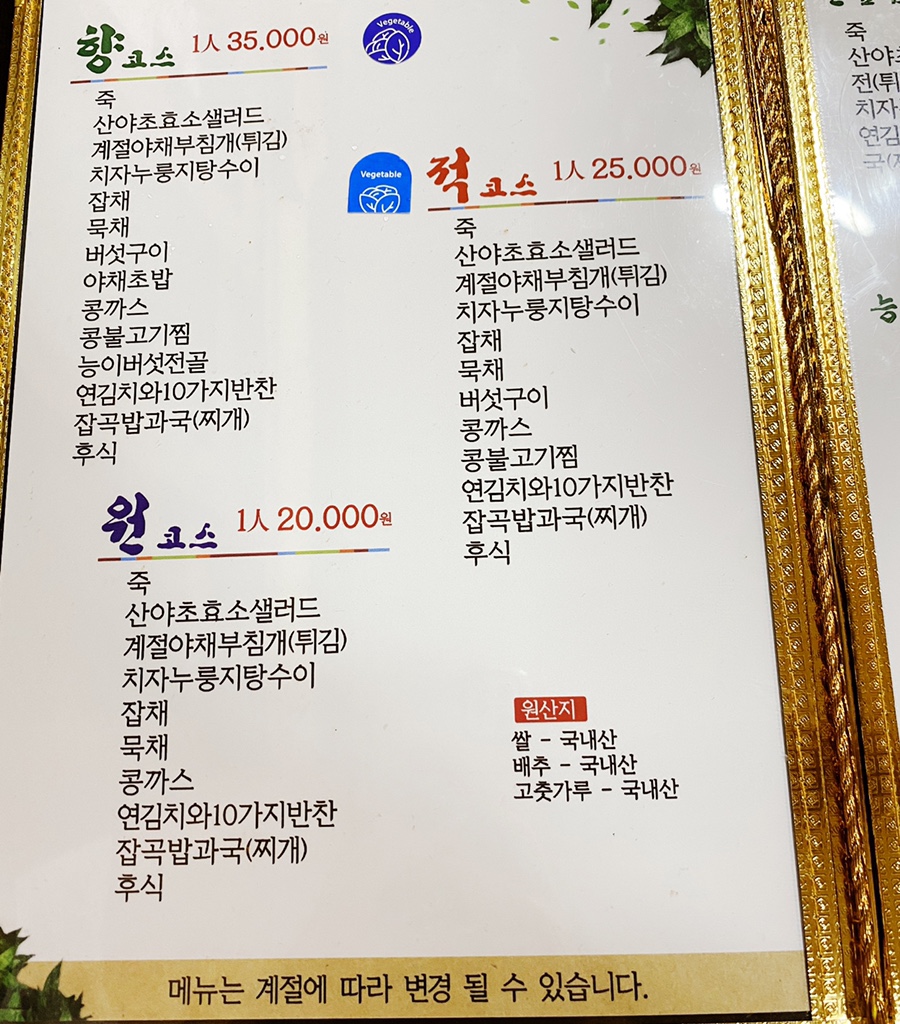 향코스 1人 35.000원
Vegetable
죽
산야초효소샐러드
계절야채부침개(튀김)
치자누룽지탕수이
잡채
묵채
버섯구이
야채초밥
콩까스
콩불고기찜
능이버섯전골
연김치와10가지반찬
잡곡밥과국(찌개)
후식
Vegetable
적코스 1人 25.000원
죽
산야초효소샐러드
계절야채부침개(튀김)
치자누룽지탕수이
잡채
묵채
버섯구이
콩까스
콩불고기찜
연김치와10가지반찬
잡곡밥과국(찌개)
후식
원코스 1人 20.000원
죽
산야초효소샐러드
계절야채부침개(튀김)
치자누룽지탕수이
잡채
묵채
콩까스
연김치와10가지반찬
잡곡밥과국(찌개)
후식
원산지
쌀 - 국내산
배추 - 국내산
고춧가루 - 국내산
메뉴는 계절에 따라 변경 될 수 있습니다.
죽
산야
전(튀
치자
연김
국(
능